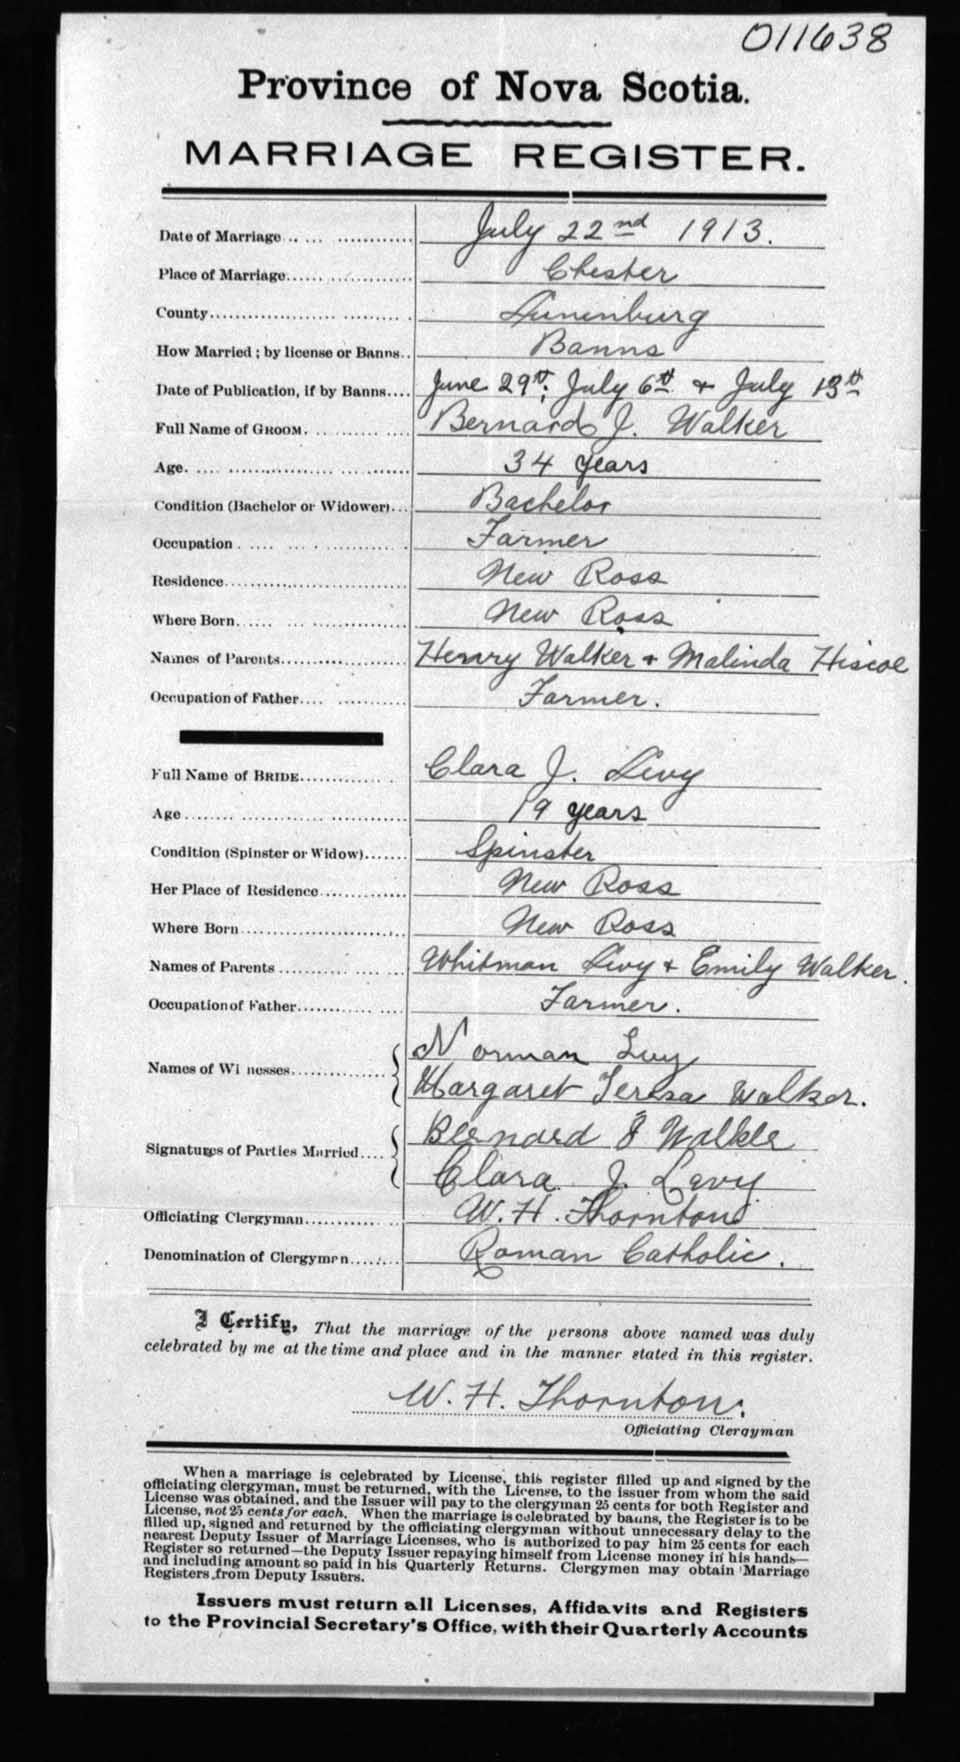 011638
Province of Nova Scotia.
MARRIAGE REGISTER.
Date of Marriage July 22nd 1913.
Place of Marriage Chester
County Lunenburg
How Married; by license or Banns Banns
Date of Publication, if by Banns June 29th, July 6th + July 13th
Full Name of GROOM Bernard J. Walker
Age 34 years
Condition (Bachelor or Widower) Bachelor
Occupation Farmer
Residence New Ross
Where Born New Ross
Names of Parents Henry Walker + Malinda Hiscoe
Occupation of Father Farmer.
Full Name of BRIDE Clara J. Levy
Age 19 years
Condition (Spinster or Widow) Spinster
Her Place of Residence New Ross
Where Born New Ross
Names of Parents Whitman Levy + Emily Walker.
Occupation of Father Farmer.
Names of Wi nesses Norman Levy
Margaret Teresa Walker.
Signatures of Parties Married Bernard J Walker
Clara J. Levy
Officiating Clergyman W. H. Thornton
Denomination of Clergymen Roman Catholic.
I Certify, That the marriage of the persons above named was duly
celebrated by me at the time and place and in the manner stated in this register.
W. H. Thornton.
Officiating Clergyman
When a marriage is celebrated by License, this register filled up and signed by the
officiating clergyman, must be returned, with the License, to the issuer from whom the said
License was obtained, and the Issuer will pay to the clergyman 25 cents for both Register and
License, not 25 cents for each. When the marriage is celebrated by banns, the Register is to be
filled up, signed and returned by the officiating clergyman without unnecessary delay to the
nearest Deputy Issuer of Marriage Licenses, who is authorized to pay him 25 cents for each
Register so returned—the Deputy Issuer repaying himself from License money in his hands—
and including amount so paid in his Quarterly Returns. Clergymen may obtain Marriage
Registers from Deputy Issuers.
Issuers must return all Licenses, Affidavits and Registers
to the Provincial Secretary's Office, with their Quarterly Accounts